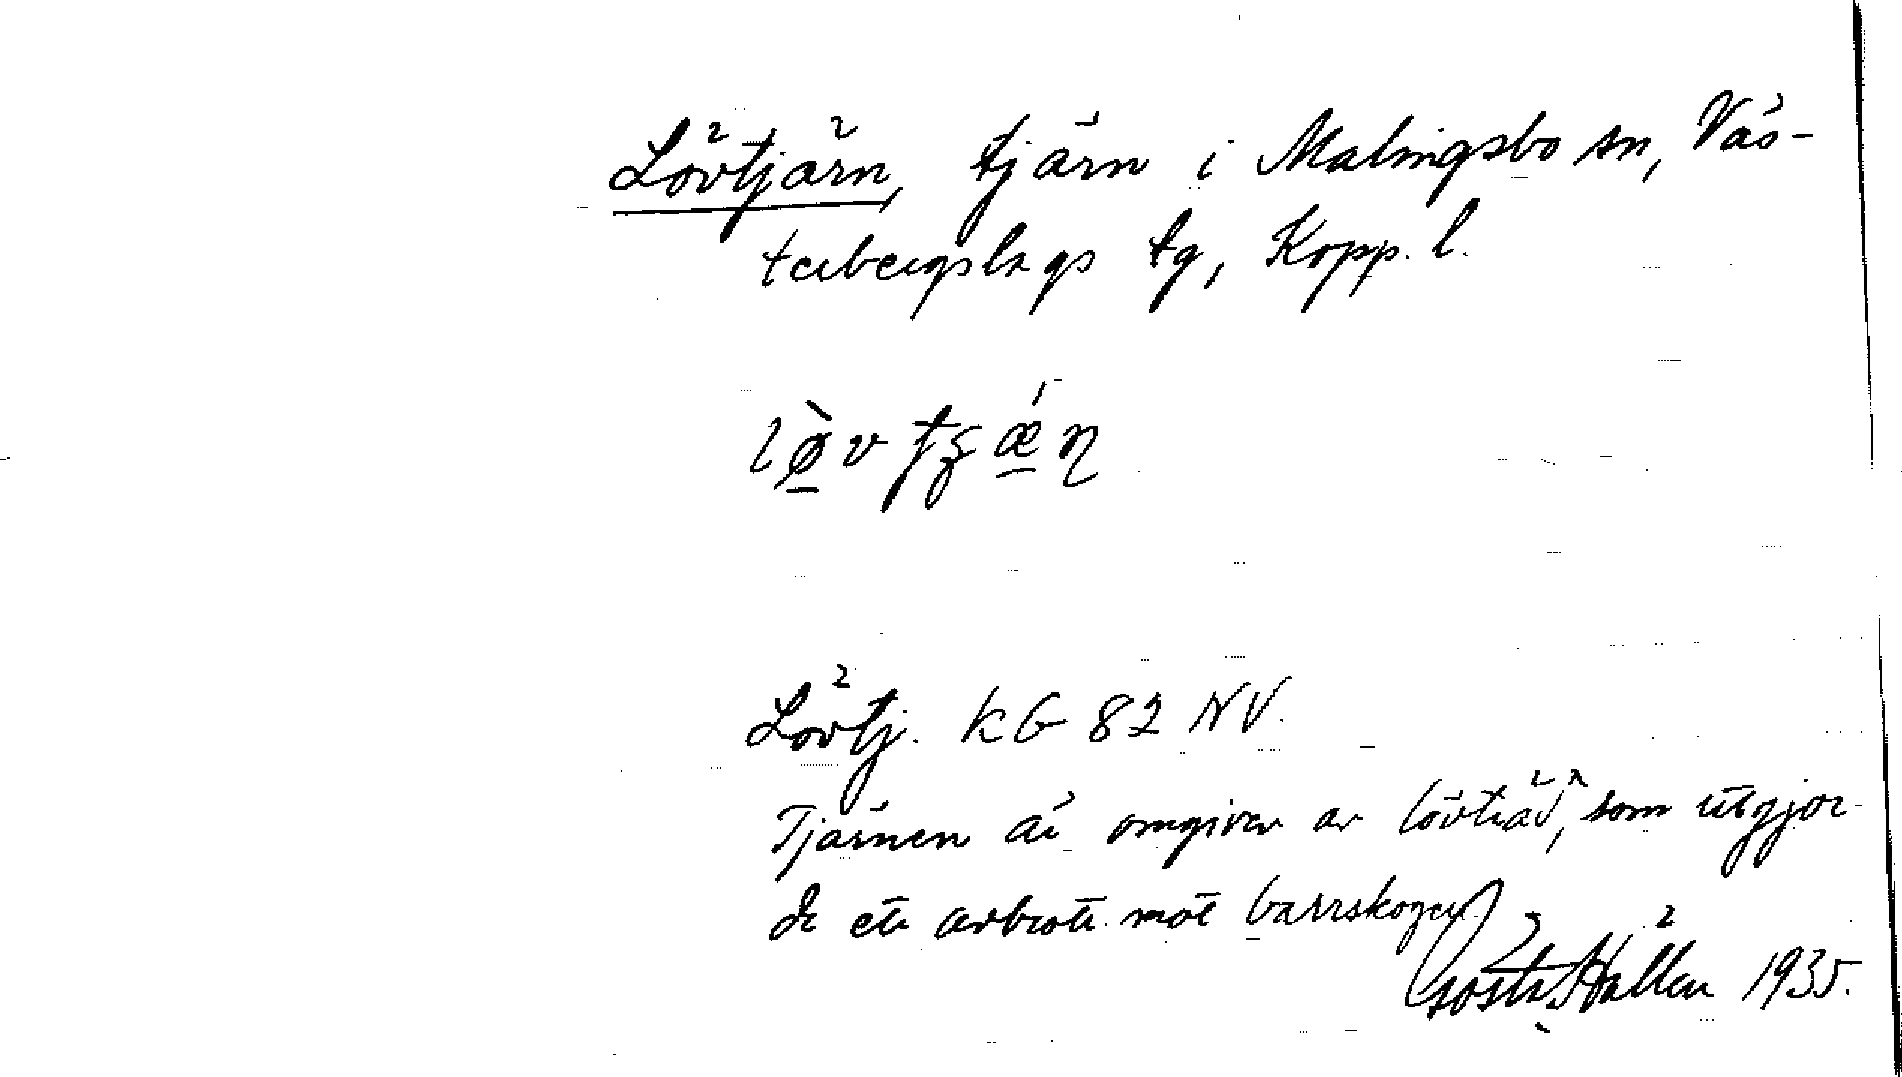 Lövtjärn, tjärn i Malingsbo sn, Väs-
terbergslags tg, Kopp. l.
lø̠̀vtʒǽ̠ɳ
Lövtj. KG 82 NV.
Tjärnen är omgiven av lövträd, som utgjor-
de ett avbrott mot barrskogen.
Gösta Hallén 1935.